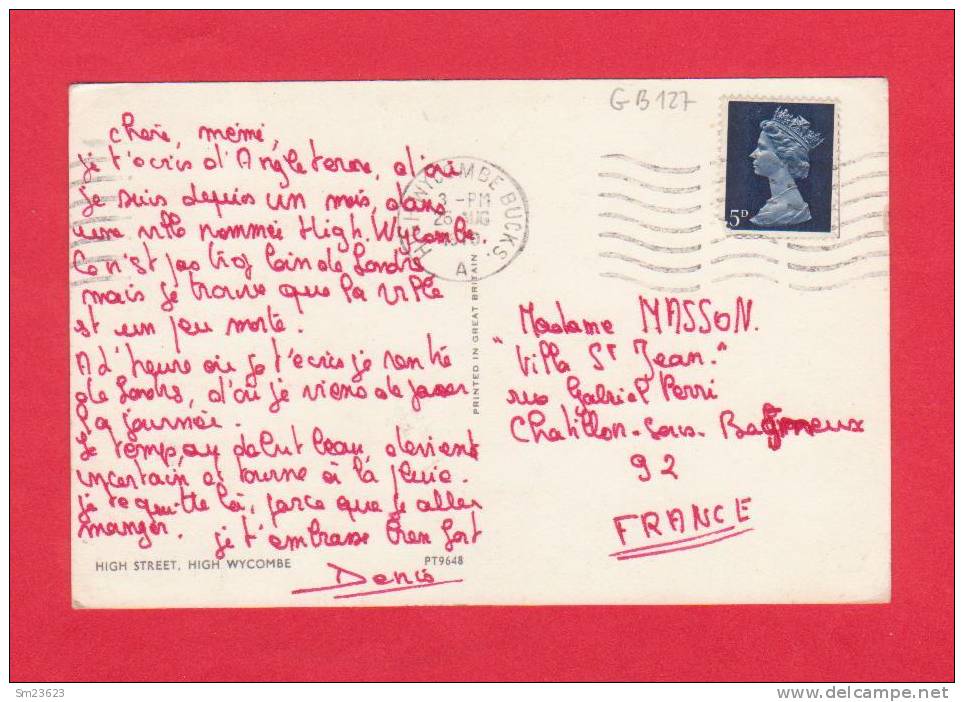 GB127
cherie, mémé,
je t'écris d'Angleterre, d'où
je suis depuis un mois, dans
une ville nommée High. Wycombe.
Ce n'st pas trop loin de Londre
mais je trouve que la ville
est un peu morte.
A d'heure où je t'écris je rentre
de Londre, d'où je viens de passer
la journée.
Le temps, au debut beau, devient
incertain et tourne à la pluie.
je te quitte là, parce que je aller
manger. je t'embrasse bien fort
Denis
HIGH STREET, HIGH WYCOMBE
PT9648
HIGH WYCOMBE BUCKS.
3 - PM
26 AUG
A
PRINTED IN GREAT BRITAIN
5D
Madame MASSON.
"Villa St Jean."
rue Gabriel Perri
Chatillon-sous-Bagneux
92
FRANCE
Sm23623
www.delcampe.net